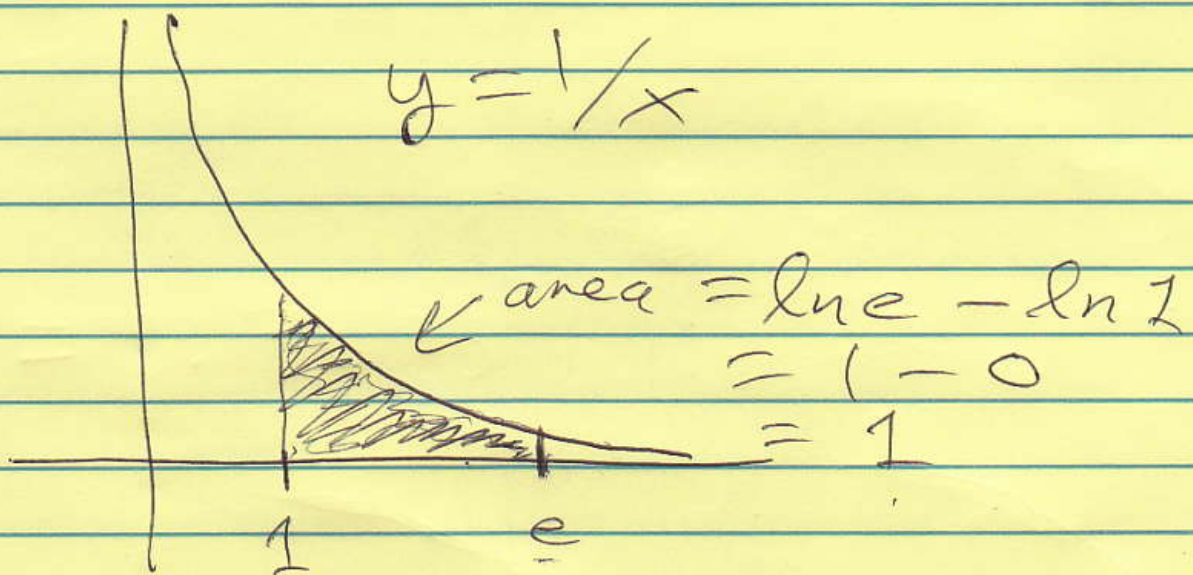 y = 1/x
area = ln e - ln 1
= 1 - 0
= 1
1 e